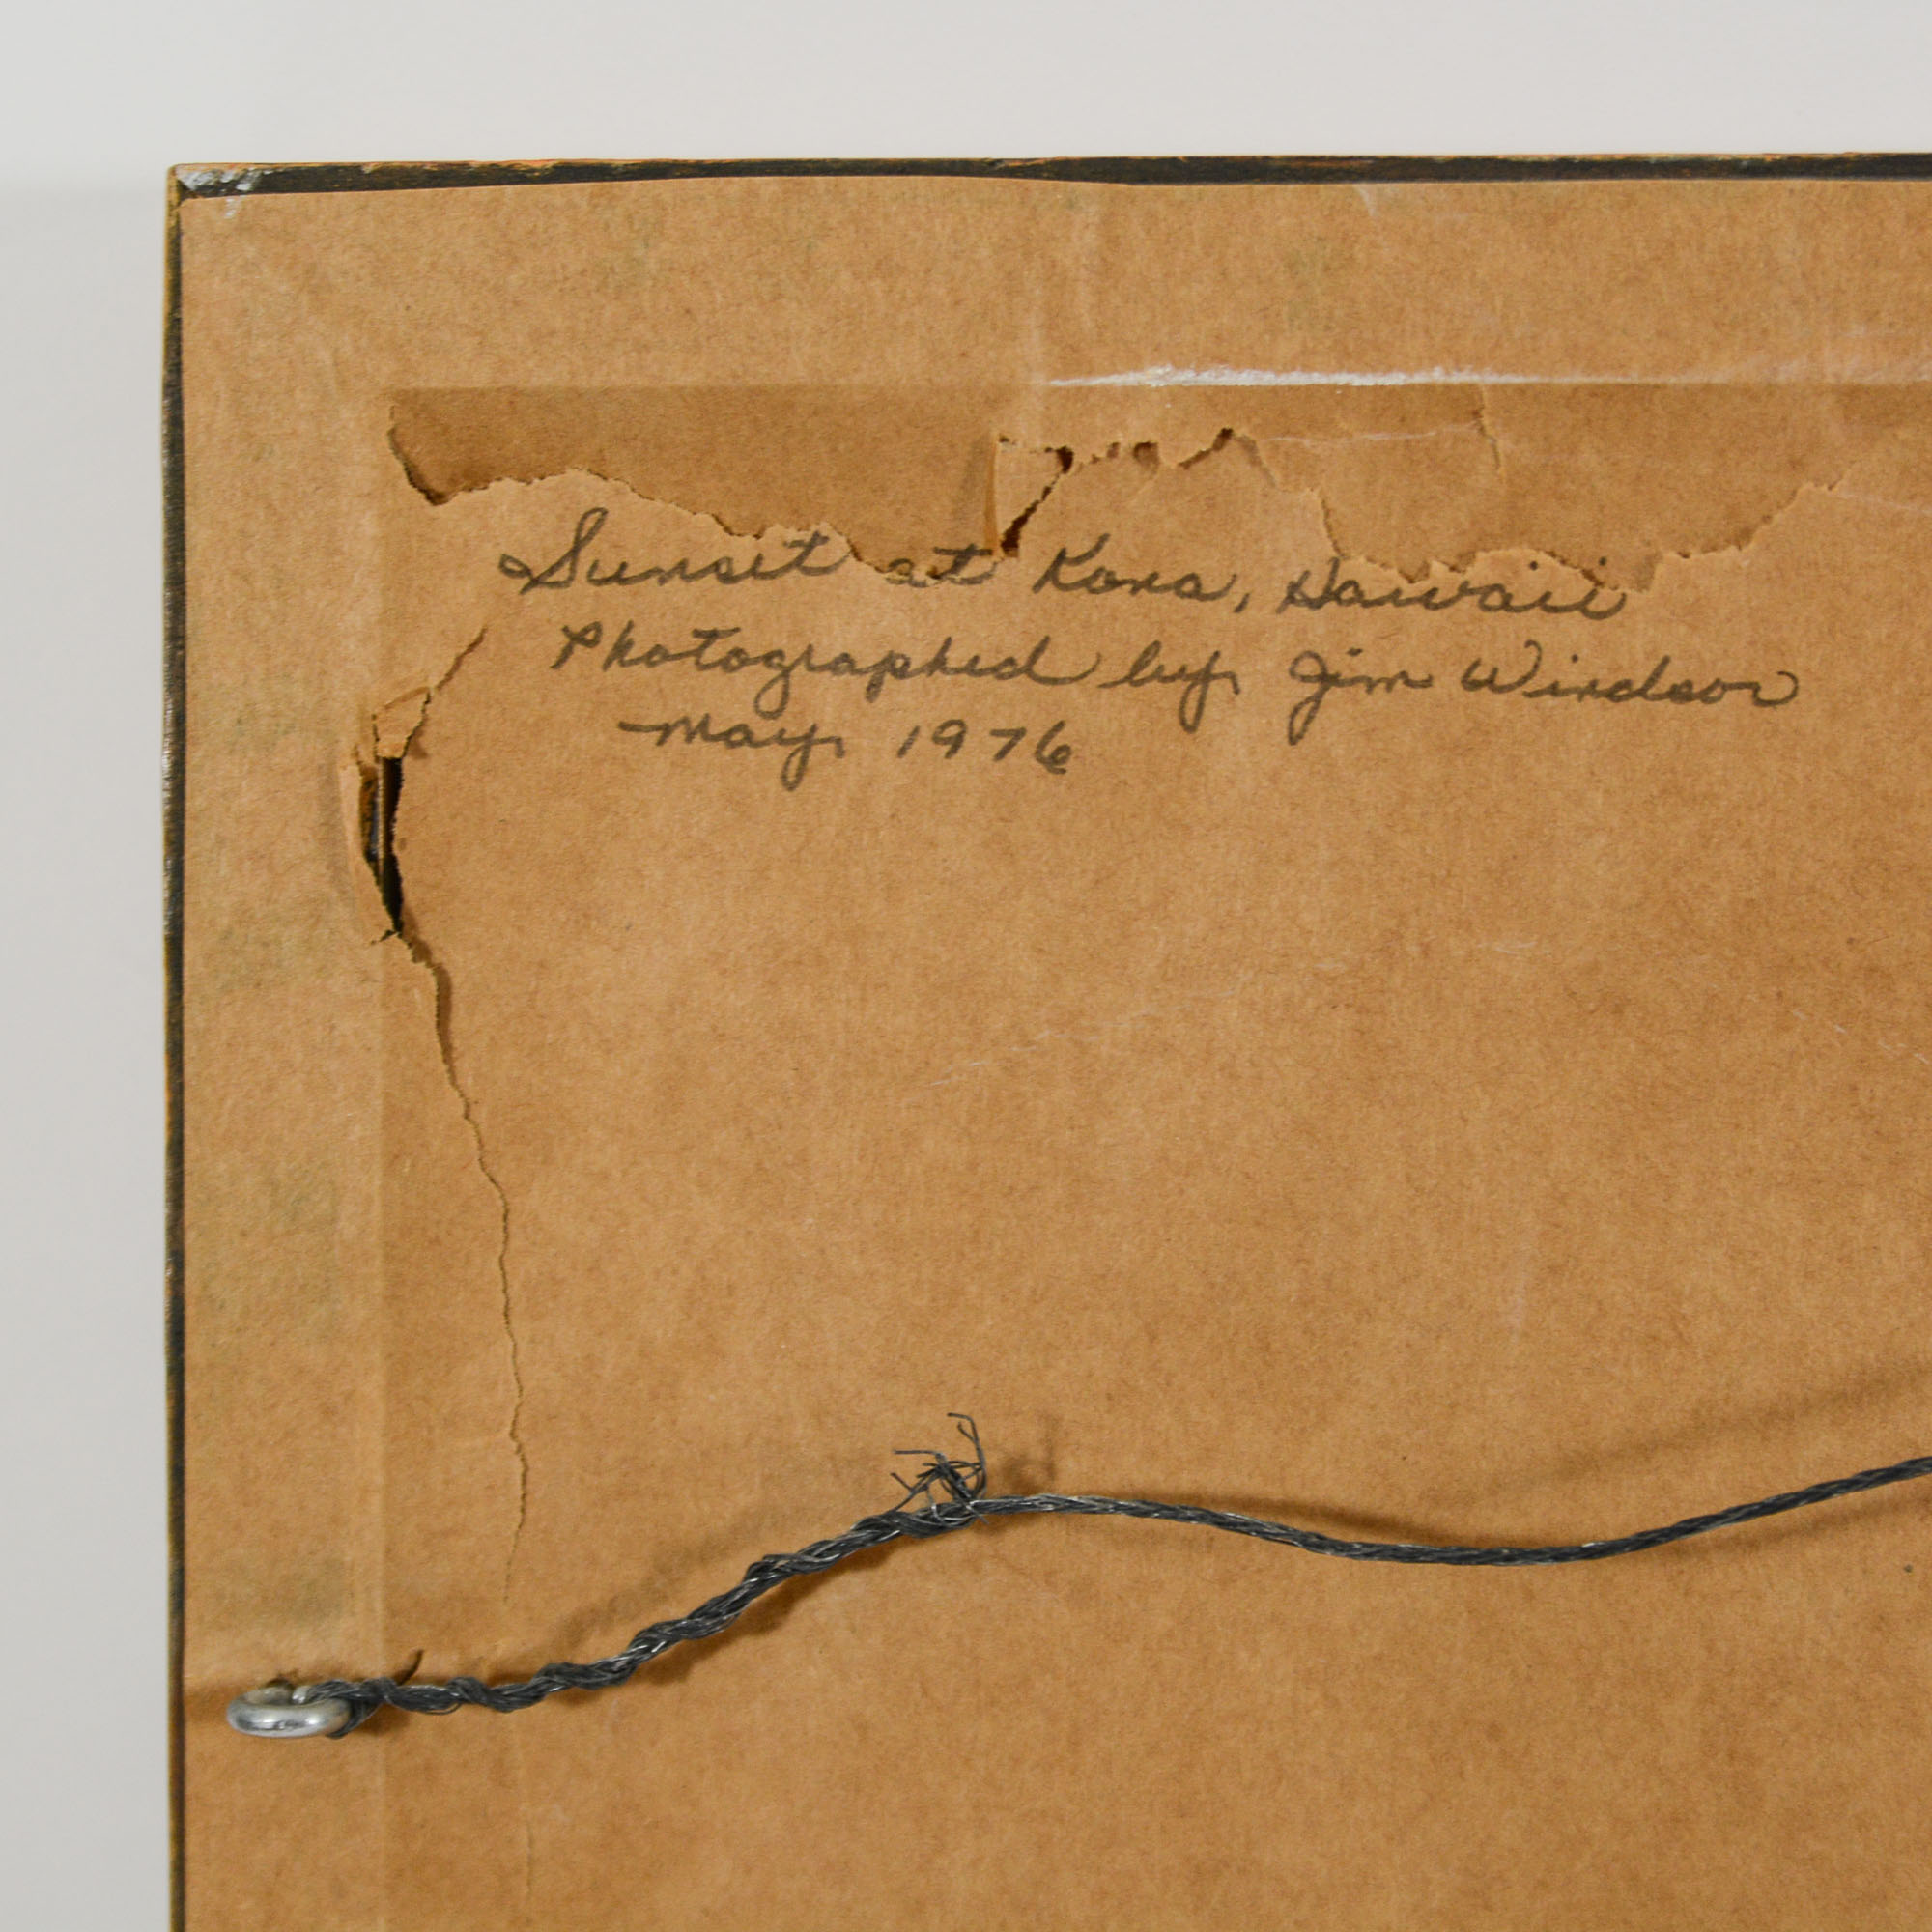 Sunset at Kona, Hawaii
Photographed by Jim Windsor
May 1976